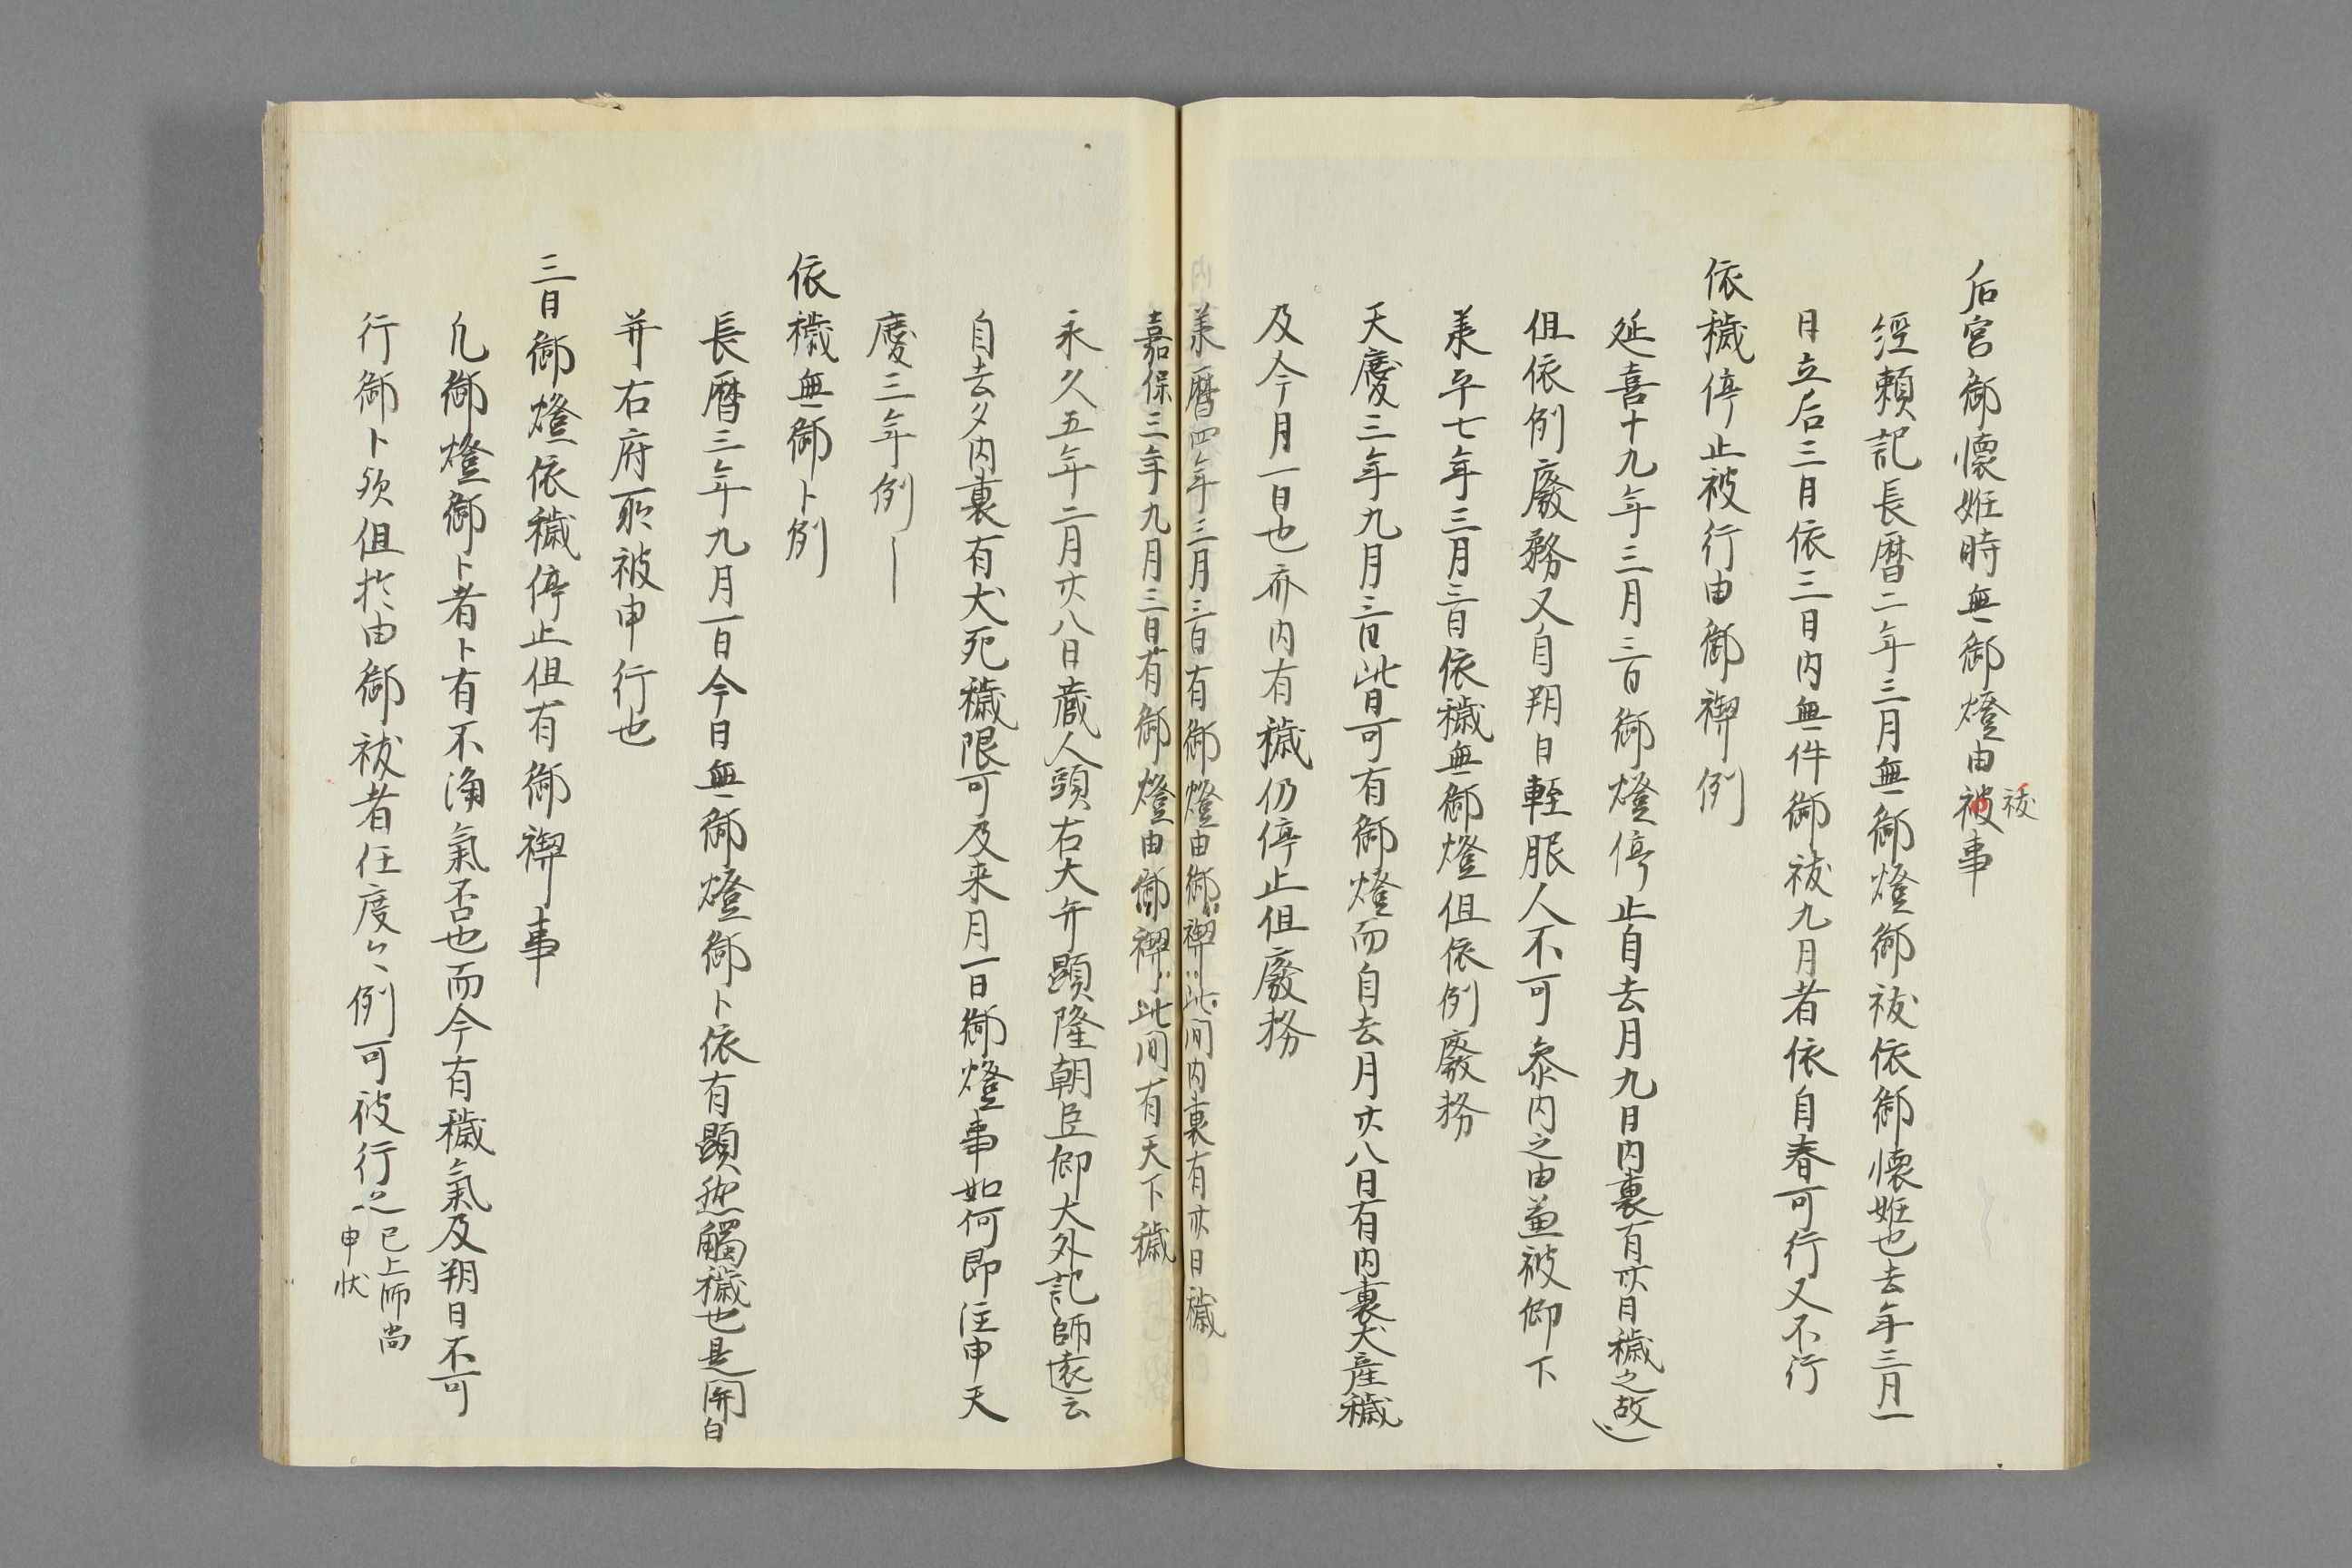 后宮御懐姙時無御燈由被事
祓
經頼記長暦二年三月無御燈御祓依御懐姙也去年三月一
日立后三月依三日内無件御祓九月者依自春可行又不行
依穢停止被行由御禊例
延喜十九年三月三日御燈停止自去月九日内裏有卅日穢之故也
但依例廢務又自朔日輕服人不可参内之由兼被仰下
羕平七年三月三日依穢無御燈但依例廢務
天慶三年九月三日此日可有御燈而自去月廿八日有内裏犬産穢
及今月一日也亦内有穢仍停止但廢務
羕暦四年三月三日有御燈由御禊此間内裏有卅日穢
嘉保三年九月三日有御燈由御禊此間有天下穢
永久五年二月廿八日蔵人頭右大弁顕隆朝臣仰大外記師遠云
自去夕内裏有犬死穢限可及来月一日御燈事如何即注申天
慶三年例
依穢無御卜例
長暦三年九月一日今日無御燈御卜依有顕然觸穢也是関白
并右府所被申行也
三日御燈依穢停止但有御禊事
凡御燈御卜者卜有不浄氣否也而今有穢氣及朔日不可
行御卜欤但於由御祓者任度々例可被行之
已上師尚
申状